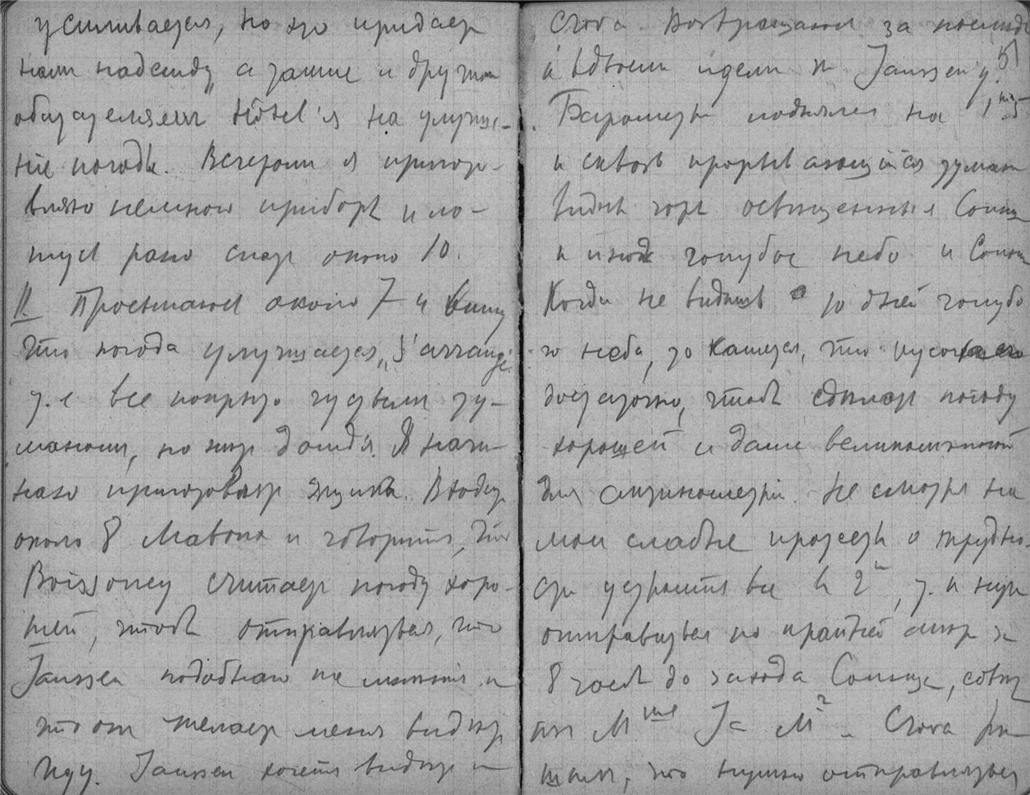 усиливается, но это придает
нам надежду, а также и другим
обитателям Hôtel'я на улучше-
ніе погоды. Вечером я приго-
вляю немного приборъ и ло-
жусь рано спать около 10.
Просыпаюсь около 7 и вижу
что погода улучшается, „s'arrange"
т. е. все покрыто густым ту-
маном, но нет дождя. Я начи-
наю приготовлять ящики. Входит
около 8 Mabona и говоритъ, что
Boissoney считает погоду хоро-
шей, чтобъ отправляться, что
Janssen подобнаго не мнения и
что он желает меня видеть
Иду. Janssen хочетъ видеть и
Снова. Возвращаюсь за
и вдвоем идем к Janssen'у.
Барометръ поднялся на 1,
и сквозь прорывающійся туман
видны горы освещенныя Солнц
и иногда голубое небо и Солнце
Когда не видишь 10 дней голубо
го неба, то кажется, что кусочка его
достаточно, чтобъ сделать погоду
хорошей и даже великолепной
для актинометріи. Не смотря на
мои слабые протесты о трудно-
сти устроить все в 2ч, т. к. нужно
отправиться по крайней мере за
8 часов до захода Солнца,
M^me Ja M^r. Снова ре
шаем, что нужно отправляться